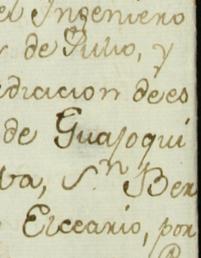 el Ingeniero
de Julio, y
diacion de es
de Guajoqui
va, S.n Ber
Elceario, por